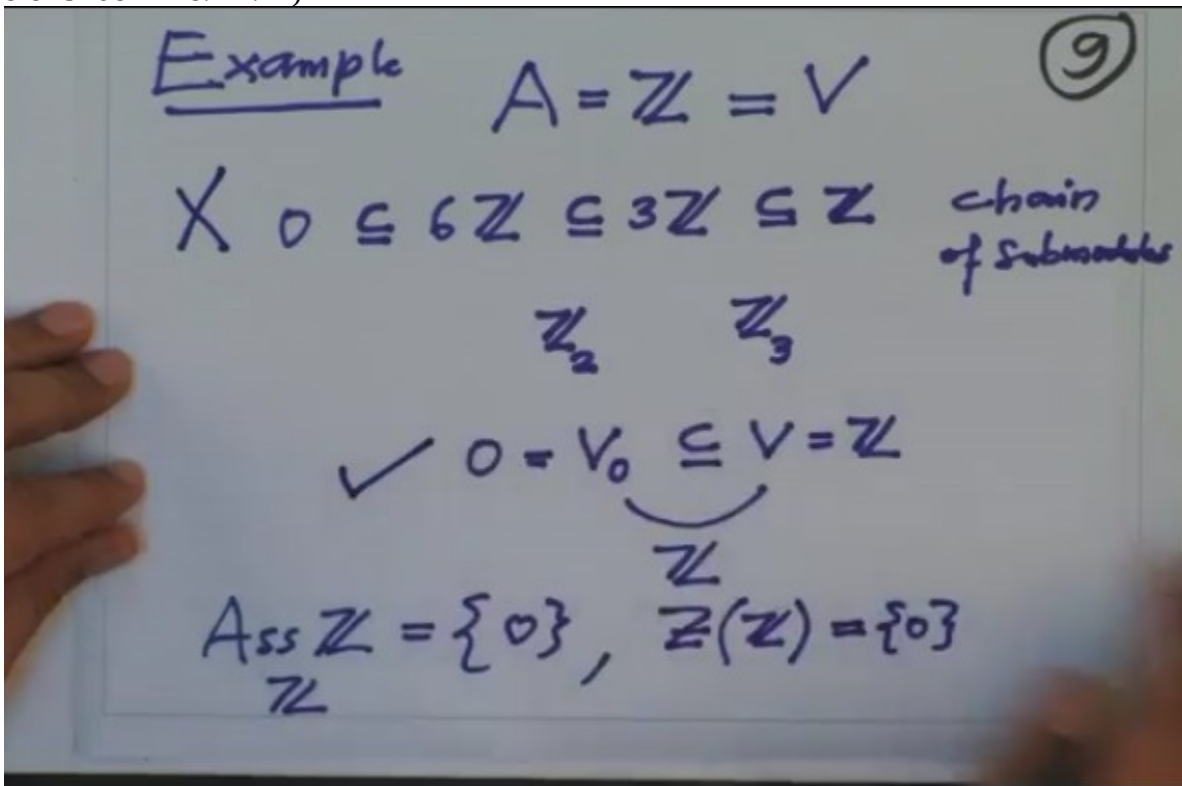 Example A = ℤ = V
9
X 0 ⊆ 6ℤ ⊆ 3ℤ ⊆ ℤ chain
of submodules
ℤ₂ ℤ₃
✓ 0 = V₀ ⊆ V = ℤ
ℤ
Ass ℤ = {0}, Z(ℤ) = {0}
ℤ